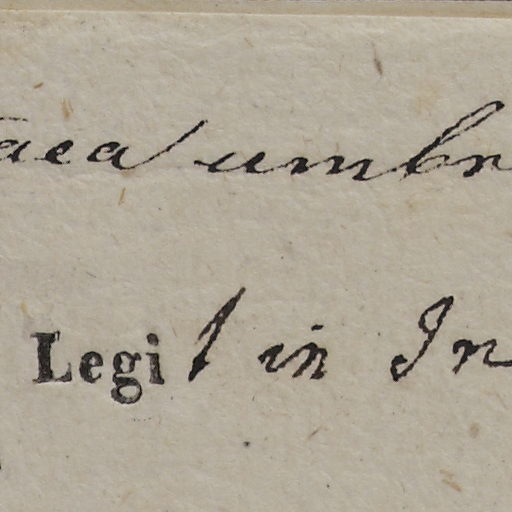 aea umbr
Legit in In